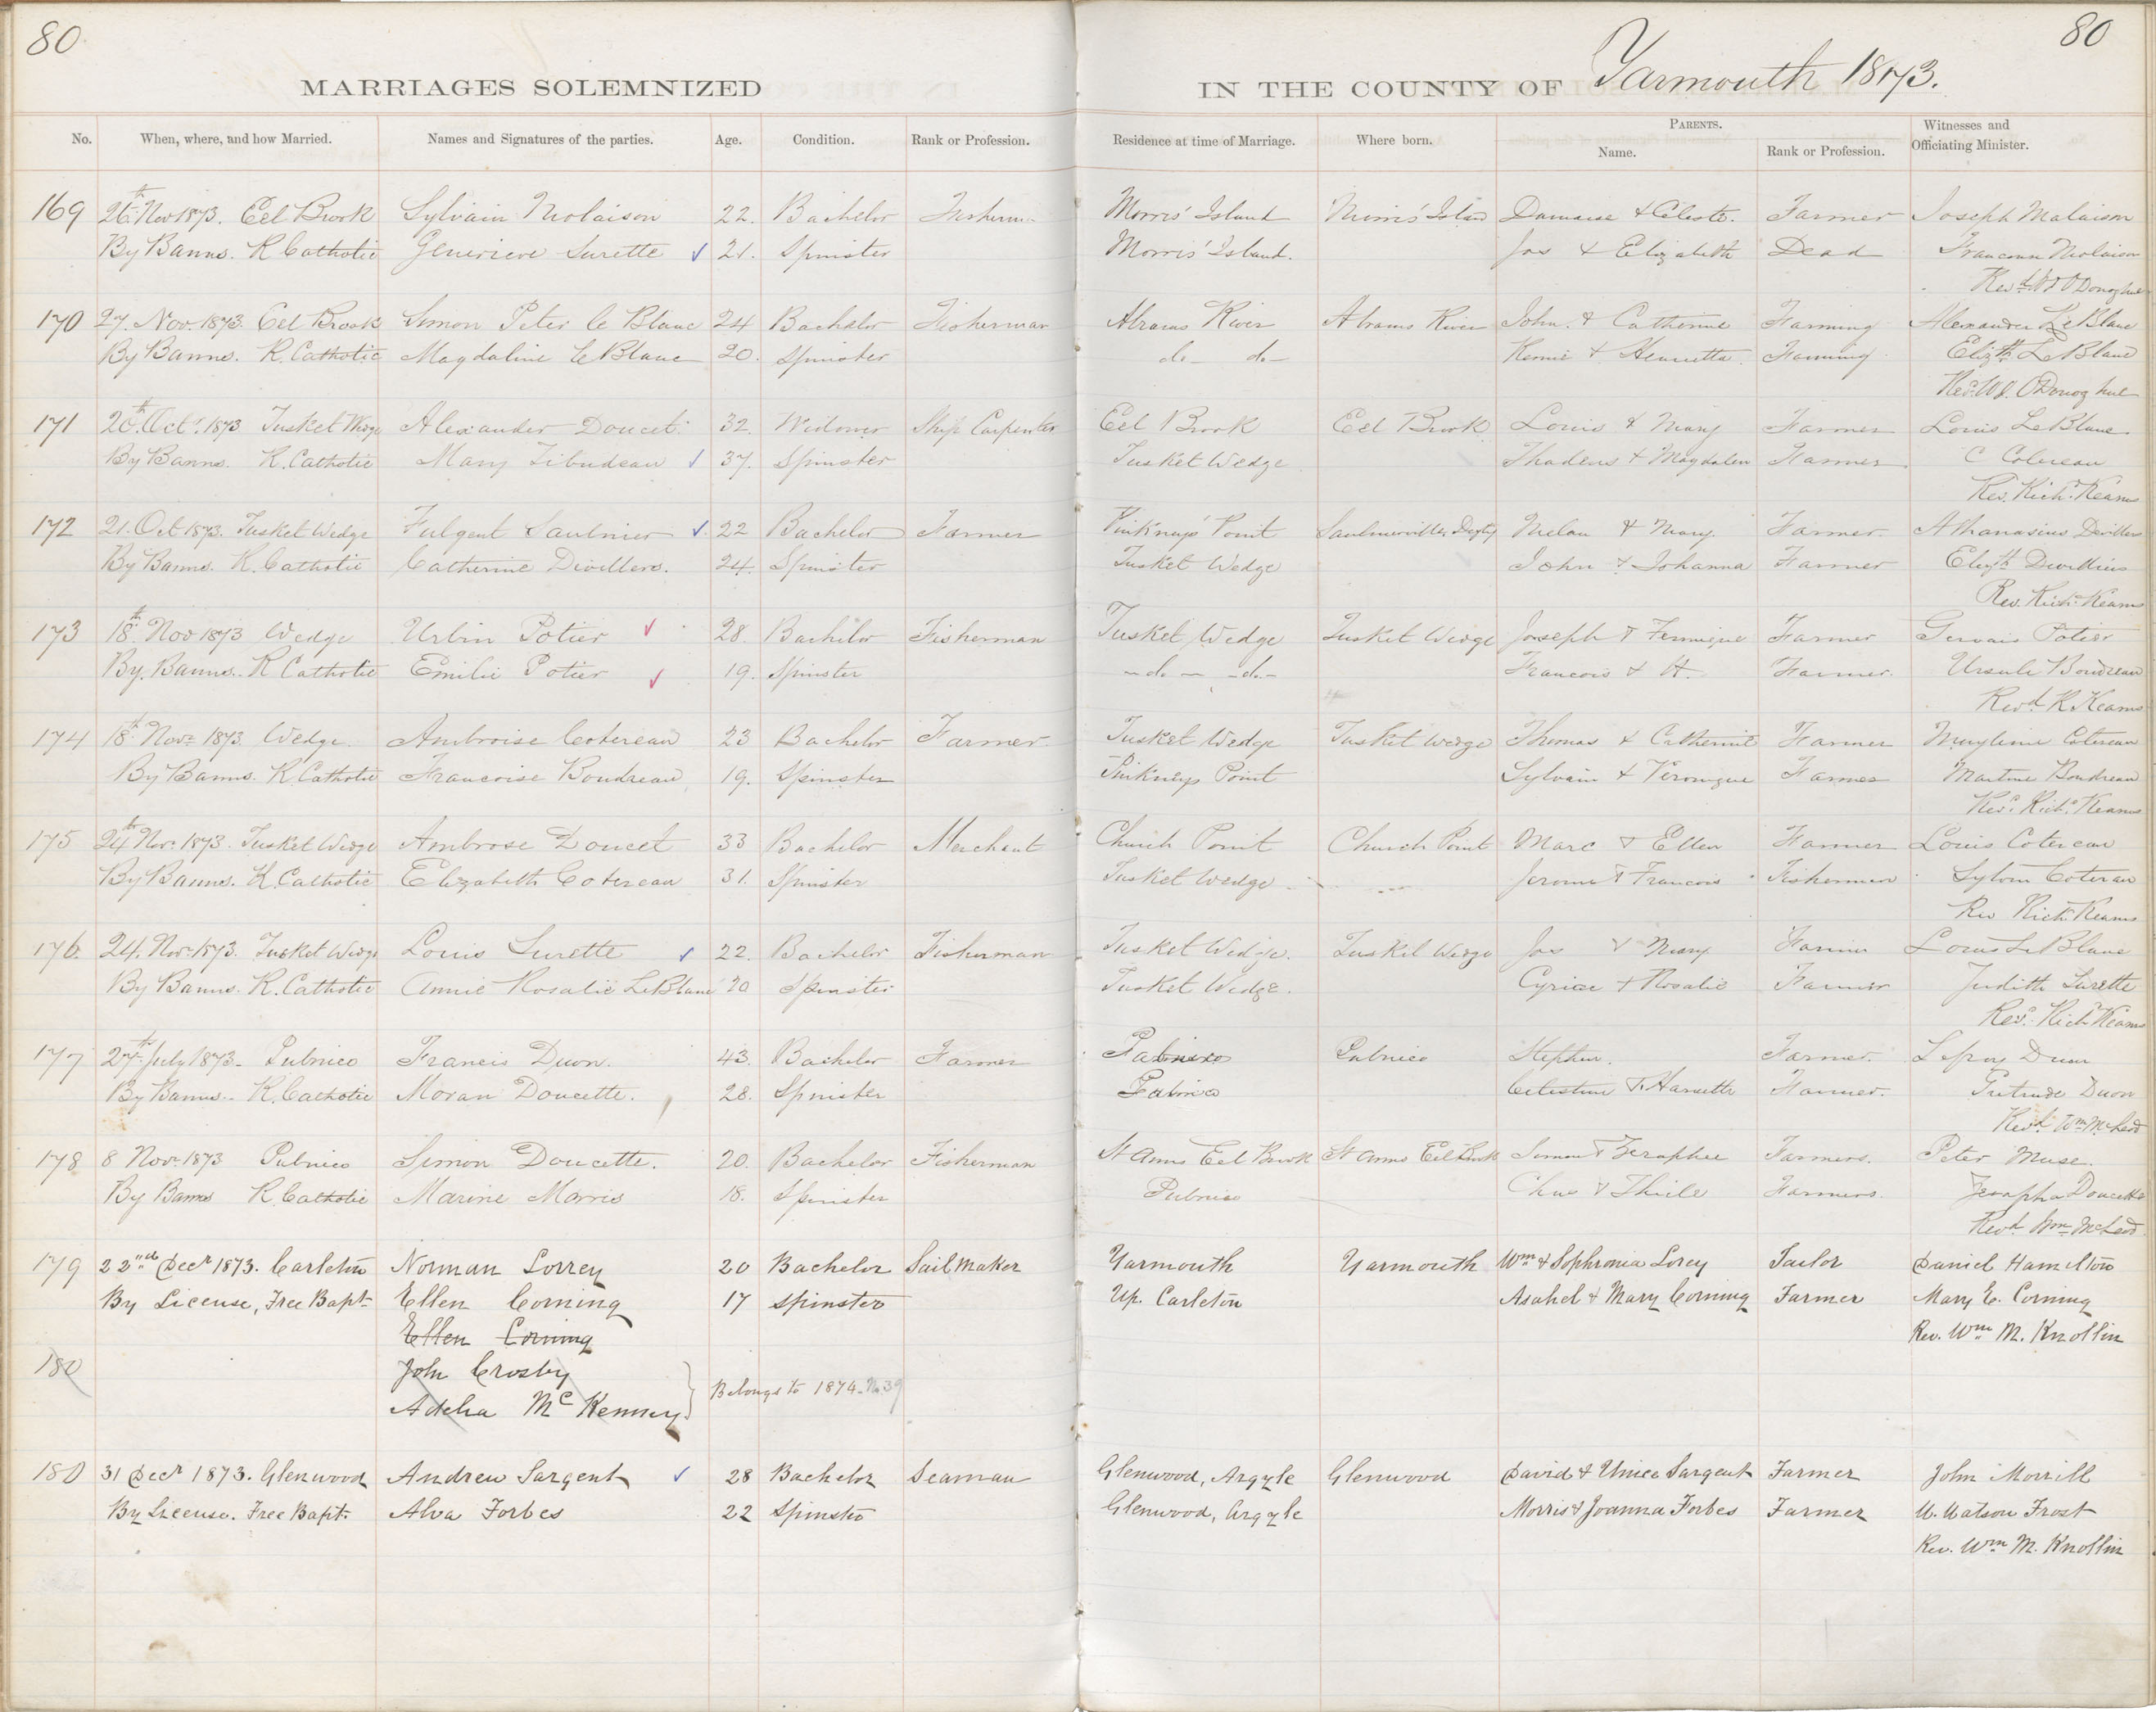 80
80
MARRIAGES SOLEMNIZED IN THE COUNTY OF Yarmouth 1873.
No. When, where, and how Married. Names and Signatures of the parties. Age. Condition. Rank or Profession. Residence at time of Marriage. Where born. PARENTS. Name. Rank or Profession. Witnesses and Officiating Minister.
169 26th Nov 1873. Eel Brook Sylvain Molaison 22. Bachelor Morris' Island Morris' Island & Celeste. Farmer Joseph Molaison
By Banns. R Catholic Genevieve Surette 21. Spinster Morris' Island. Jos & Elizabeth Dead Molaison
O'Donoghue
170 27. Nov. 1873. Eel Brook Simon Peter le Blanc 24 Bachelor Fisherman Abrams River Abrams River John. & Catherine Farming Alexander Le Blanc
By Banns. R. Catholic Magdaline le Blanc 20. Spinster do- do- & Henrietta. Farming Elizth. Le Blanc
Revd. W. J. O'Donoghue
171 20th Oct. 1873 Tusket Wedge Alexander Doucet. 32. Widower Ship Carpenter Eel Brook Eel Brook Louis & Mary Farmer Louis Le Blanc
By Banns. R. Catholic Mary Tibudeau 37. Spinster Tusket Wedge Thadeus & Magdalen Farmer C
Rev. Richd. Kearns
172 21. Oct 1873. Tusket Wedge Fulgent Saulnier 22 Bachelor Farmer Pinkneys' Point Saulnierville, Digby & Mary. Farmer. Athanasius
By Banns. R. Catholic Catherine Divillers. 24. Spinster Tusket Wedge John & Johanna Farmer
Rev. Richd. Kearns
173 18th Nov 1873 Wedge Urbin Potier 28. Bachelor Fisherman Tusket Wedge Tusket Wedge Joseph & Farmer Gervais Potier
By. Banns. R Catholic Emilie Potier 19. Spinster -do- -do- Francois & H. Farmer. Ursule Boudreau
Revd. R. Kearns
174 18th Novr 1873. Wedge. Ambroise Cotereau 23 Bachelor Farmer Tusket Wedge Tusket Wedge Thomas & Catherine Farmer Cotereau
By Banns. R. Catholic Francoise Boudreau 19. Spinster Pinkneys Point Sylvain & Veronique Farmer Boudreau
Revd. Richd. Kearns
175 24th Nov. 1873. Tusket Wedge Ambrose Doucet 33 Bachelor Merchant Church Point Church Point Marc & Ellen Farmer Louis Cotereau
By Banns. R. Catholic Elizabeth Cotereau 31. Spinster Tusket Wedge Jerome & Francois Fisherman Cotereau
Rev Richd. Kearns
176. 24. Novr 1873. Tusket Wedge Louis Surette 22. Bachelor Fisherman Tusket Wedge. Tusket Wedge Jos & Mary. Farmer Louis Le Blanc
By Banns. R. Catholic Annie Rosalie LeBlanc 20 Spinster Tusket Wedge. & Rosalie Farmer Judith Surette
Revd. Richd. Kearns
177 27th July 1873- Pubnico Francis Duon. 43. Bachelor Farmer Pubnico Pubnico Stephen. Farmer. Duon
By Banns- R. Catholic Doucette. 28. Spinster Pubnico Farmer. Duon
Revd. Wm. McLeod
178 8 Novr 1873 Pubnico Simon Doucette. 20. Bachelor Fisherman St Anns Eel Brook St Anns Eel Brook Simon & Farmers. Peter Muse.
By Banns R. Catholic Marine Morris 18. Spinster Pubnico Farmers. Doucette
Revd. Wm McLeod
179 22nd Decr 1873. Carleton Norman Lorrey 20 Bachelor Sail Maker Yarmouth Yarmouth Wm & Sophronia Lorey Tailor Daniel Hamilton
By License, Free Bapt. Ellen Corning 17 Spinster Up. Carleton Asahel & Mary Corning Farmer Mary E. Corning
Ellen Corning Rev. Wm M. Knollin
180 John Crosby
Adelia McKenney } Belongs to 1874. No 39
180 31 Decr 1873. Glenwood Andrew Sargent 28 Bachelor Seaman Glenwood, Argyle Glenwood David & Unice Sargent Farmer John Morrill
By License. Free Bapt. Alva Forbes 22 Spinster Glenwood, Argyle Morris & Joanna Forbes Farmer W. Watson Frost
Rev. Wm M. Knollin